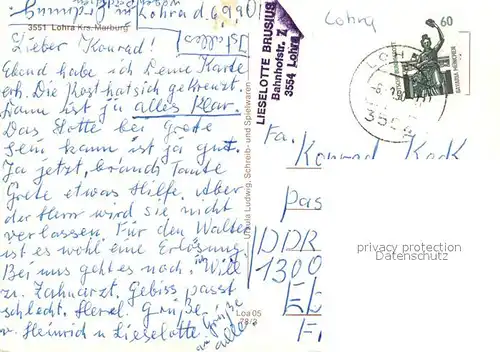 Lohra d. 6.9.90
3551 Lohra Krs. Marburg
Lieber Konrad!
Ist alles
Eband habe ich Deine Karte
erh. Die Post hat sich gekreuzt.
Dann ist ja alles Klar.
Das Lotte bei Grete
sein kann ist ja gut.
Ja jetzt, brauch Tante
Grete etwas Hilfe. Aber
der Herr wird sie nicht
verlassen. Für den Walter
ist es wohl eine Erlösung.
Bei uns geht es noch. Will
zu. Zahnarzt. Gebiss passt
schlecht. Herzl. Grüße
v. Heinrich u Lieselotte.
Grüße
an alle
Ursula Ludwig, Schreib- und Spielwaren
Loa 05
LIESELOTTE BRUSIUS
Bahnhofstr. 7
3554 Lohra
Lohra
60
DEUTSCHE BUNDESPOST
BAVARIA MÜNCHEN
3554
Fa.
Konrad Kack
Pas
DDR
1300
Eb
privacy protection
Datenschutz